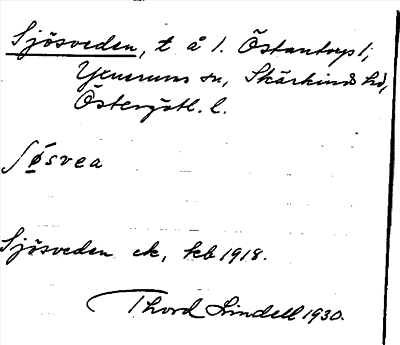 Sjösveden, t å 1. Östantorp 1;
Yxnerums sn, Skärkinds hd,
Östergötl. l.
Søsvea
Sjösveden ek, kb 1918.
Thord Lindell 1930.